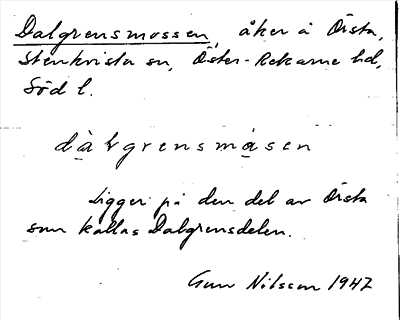 Dalgrensmossen, åker å Örsta,
Stenkvista sn, Öster-Rekarne hd,
Söd l.
dàlgrensmåsen
Ligger på den del av Örsta
som kallas Dalgrensdelen.
Gun Nilsson 1947